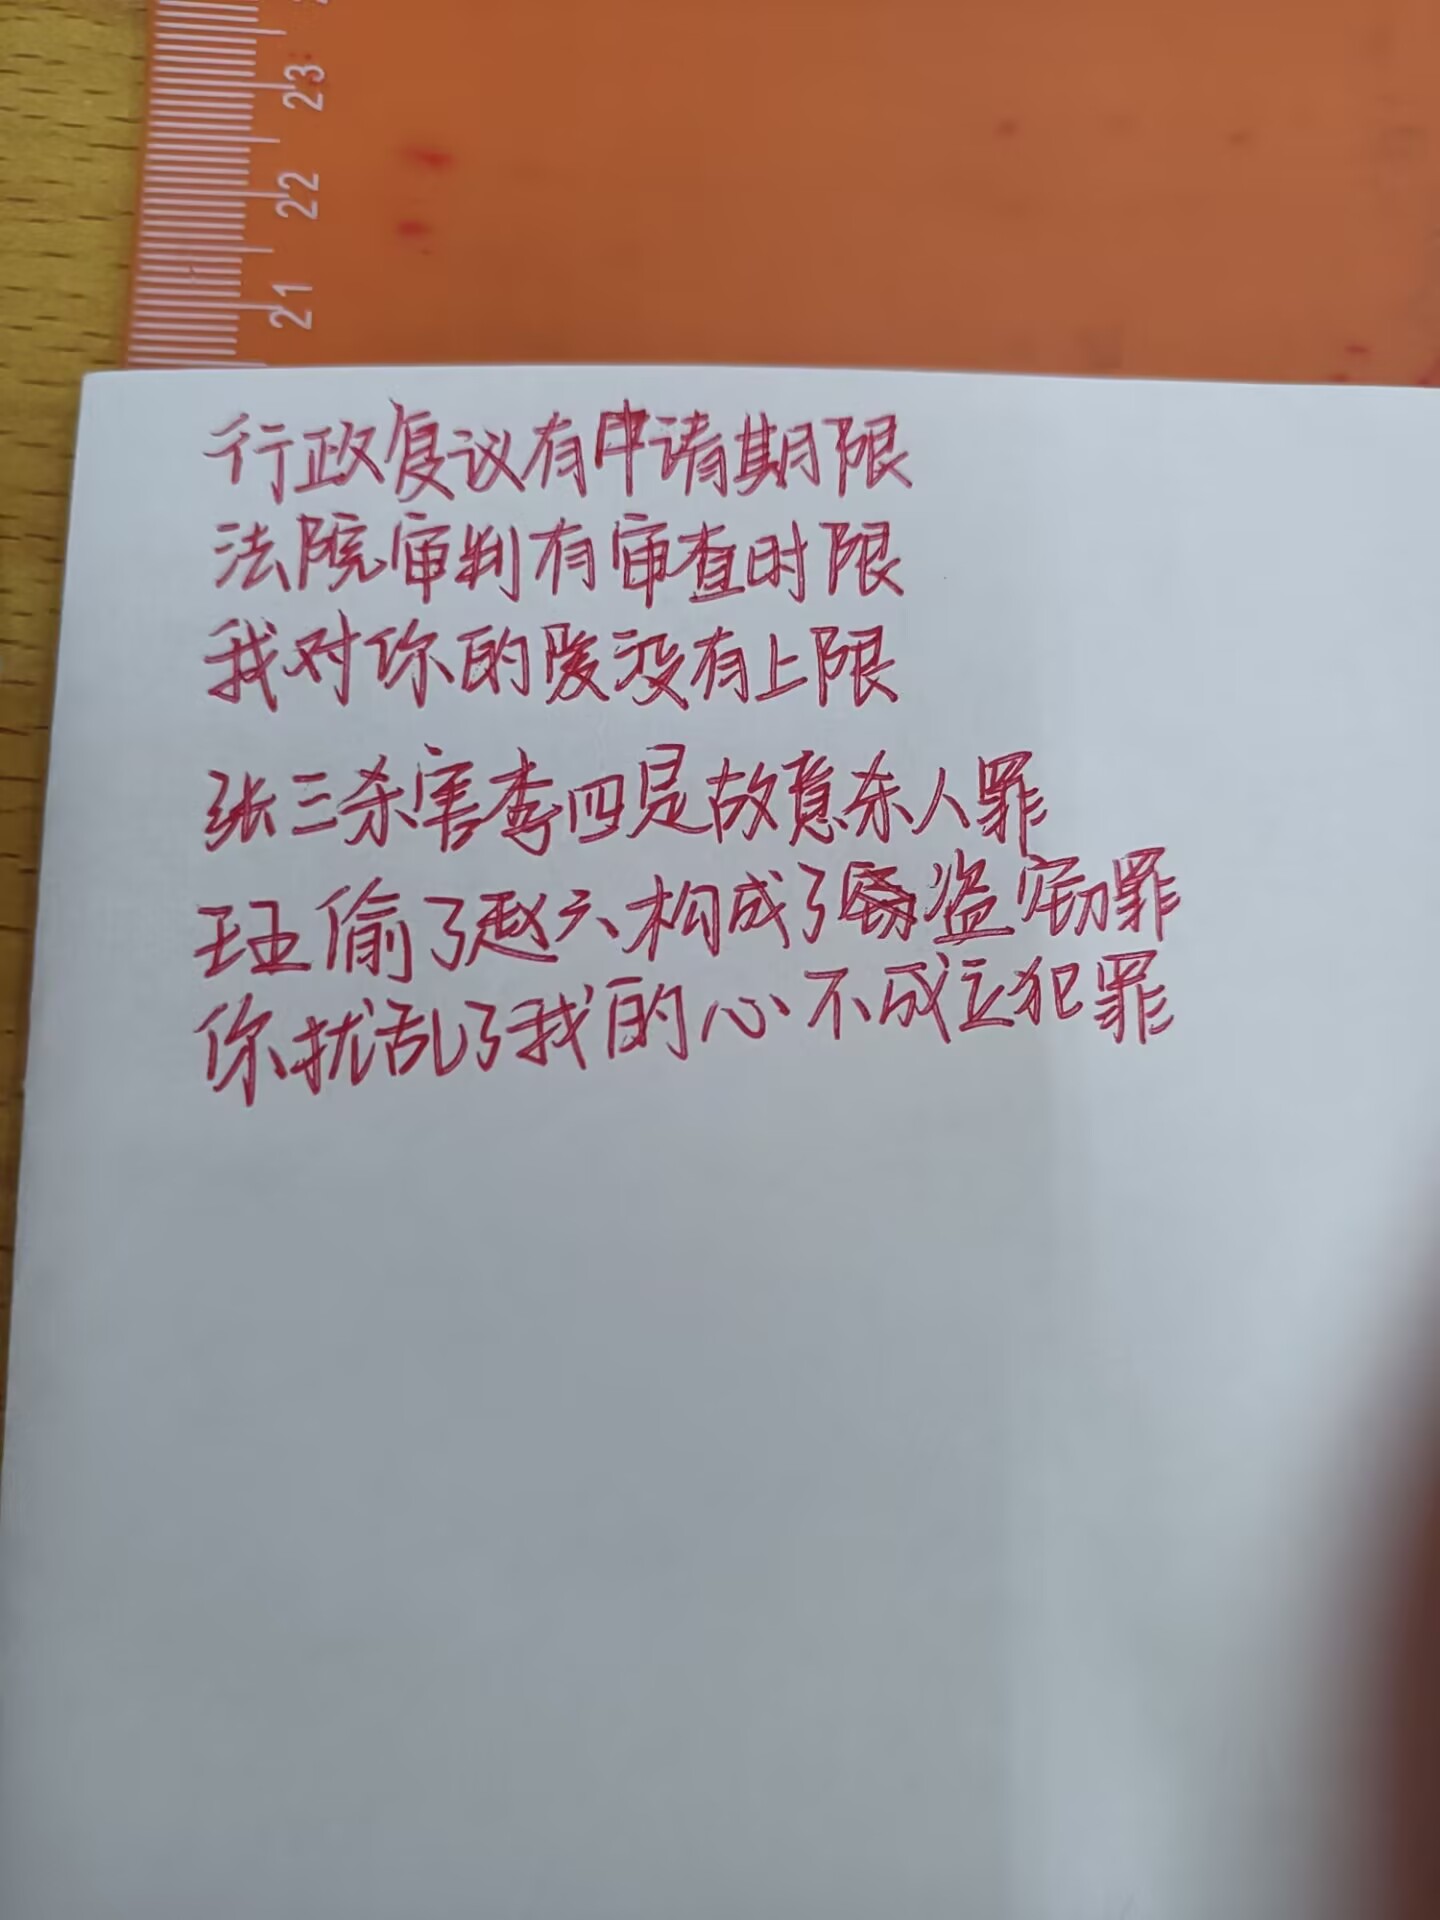 23
22
21
行政复议有申请期限
法院审判有审查时限
我对你的爱没有上限
张三杀害李四是故意杀人罪
王五偷了赵六构成了盗窃罪
你扰乱了我的心不成立犯罪